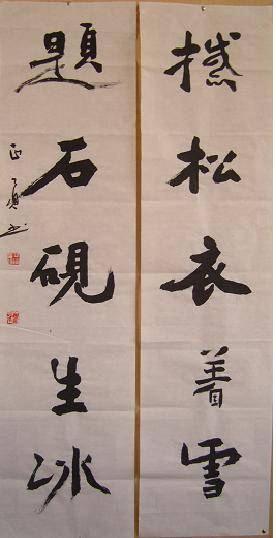 撼松衣着雪
題石硯生冰